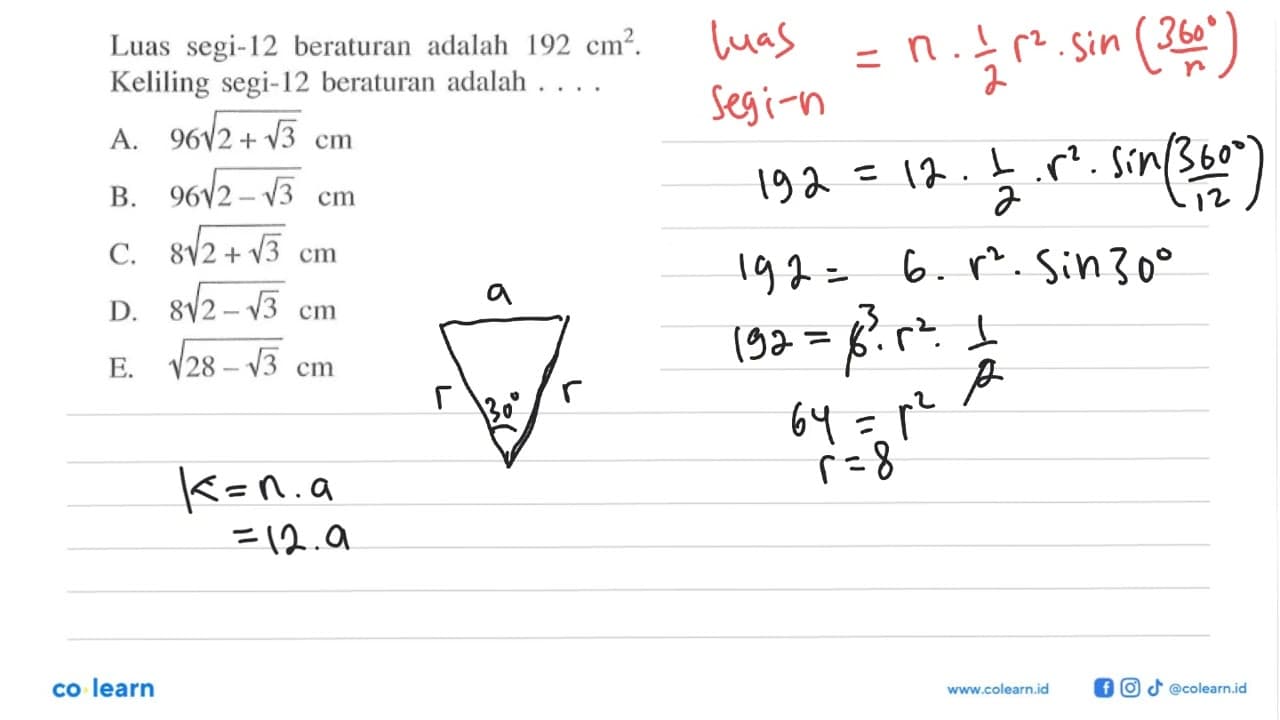 Luas segi-12 beraturan adalah 192 cm².
Keliling segi-12 beraturan adalah . . . .
A. 96√(2 + √3) cm
B. 96√(2 – √3) cm
C. 8√(2 + √3) cm
D. 8√(2 – √3) cm
E. √(28 – √3) cm
Luas segi-n = n . 1/2 r² . sin (360°/n)
192 = 12 . 1/2 . r² . sin (360°/12)
192 = 6 . r² . sin 30°
192 = 6 3 . r² . 1/2
64 = r²
r = 8
a
r
30°
r
K = n . a
= 12 . a
co learn
www.colearn.id
@colearn.id